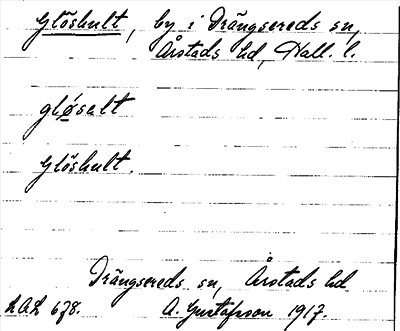 Glöshult, by i Drängsereds sn,
Årstads hd, Hall. l.
gløsalt
Glöshult.
Drängsereds sn, Årstads hd
LAL 678. A. Gustafsson 1917.